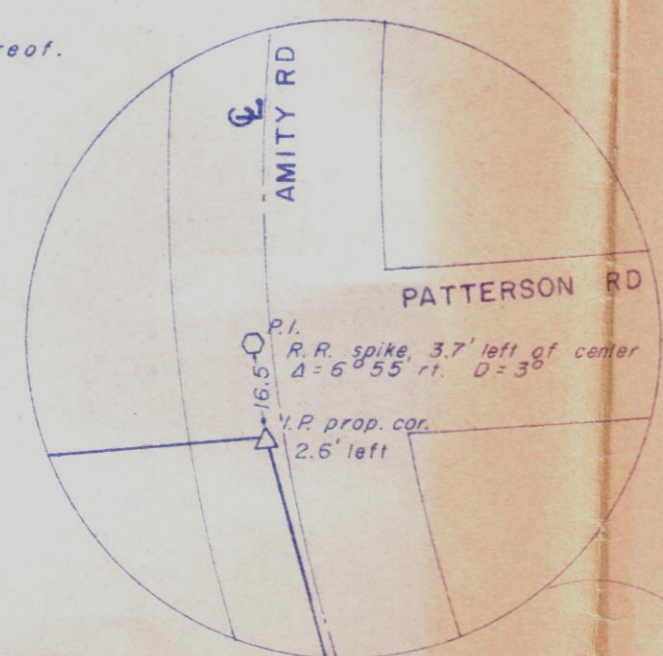 reof.
℄
AMITY RD
PATTERSON RD
P.I.
R.R. spike, 3.7' left of center
Δ = 6° 55' rt. D = 3°
16.5'
I.P. prop. cor.
2.6' left